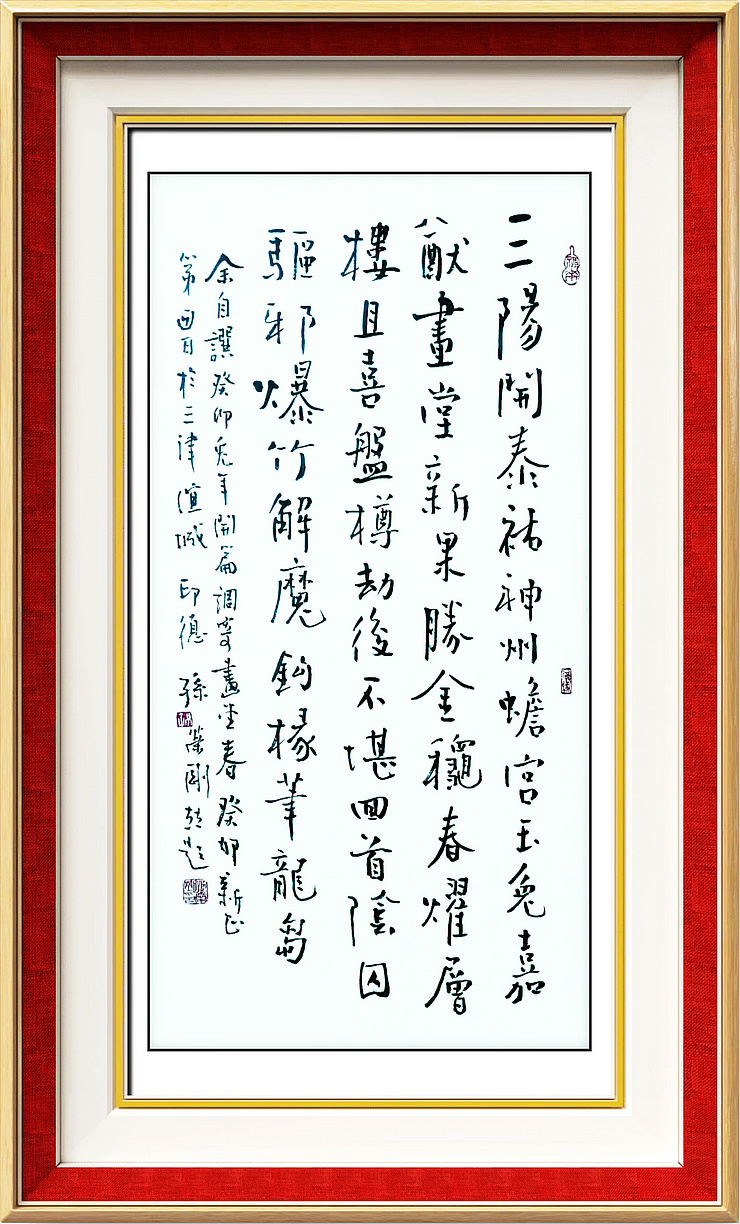 三陽開泰祐神州蟾宮玉兔嘉
猷畫堂新果勝金穐春耀層
樓且喜盤樽劫後不堪回首陰囚
驅邪爆竹解魔鈎椽筆龍芻
余自譔癸卯兔年開篇調寄畫堂春癸卯新正
第四日於三津渲城印德孫榮剛題